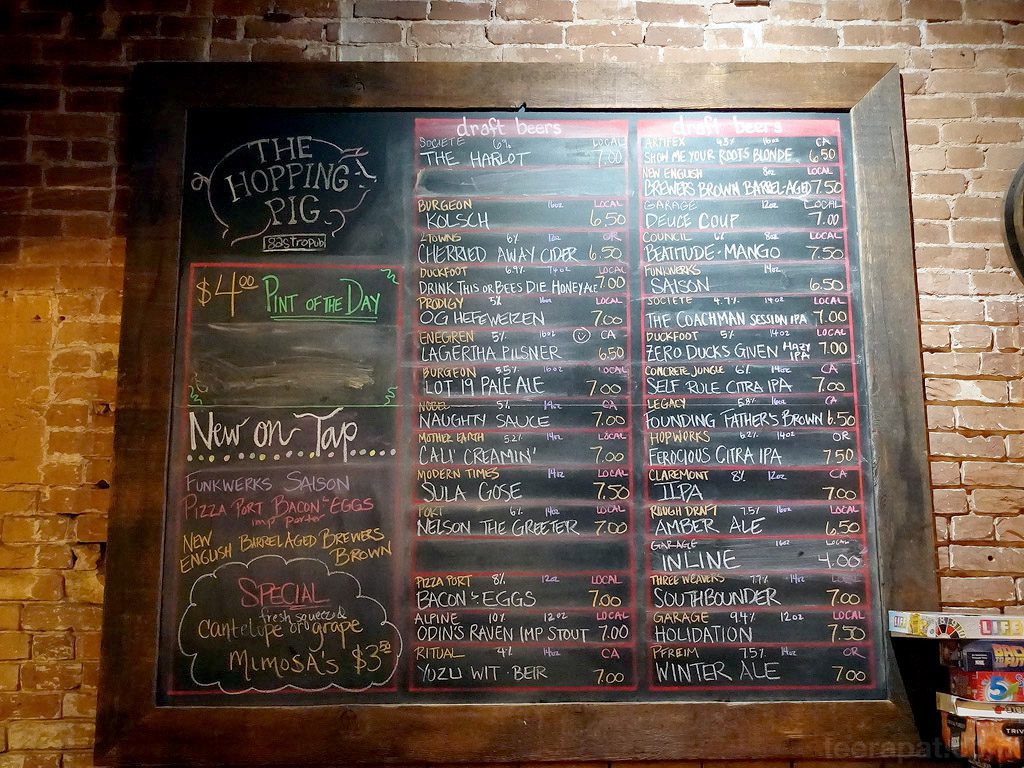 THE
HOPPING
PIG
gastropub
$4.00 PINT OF THE DAY
NEW ON TAP
FUNKWERKS SAISON
PIZZA PORT BACON & EGGS
imp porter
NEW ENGLISH BARREL AGED BREWERS BROWN
SPECIAL
fresh squeezed
CANTELUPE or grape
MIMOSA'S $3.50
draft beers
SOCIETE 6% LOCAL
THE HARLOT 7.00
BURGEON 16oz LOCAL
KOLSCH 6.50
2TOWNS 6% 12oz OR
CHERRIED AWAY CIDER 6.50
DUCKFOOT 6.9% 14oz LOCAL
DRINK THIS OR BEES DIE HONEY ALE 7.00
PRODIGY 5% 16oz LOCAL
OG HEFEWEIZEN 7.00
ENEGREN 5% 16oz CA
LAGERTHA PILSNER 6.50
BURGEON 5.5% 16oz LOCAL
LOT 19 PALE ALE 7.00
NOBEL 5% 14oz CA
NAUGHTY SAUCE 7.00
MOTHER EARTH 5.2% 14oz LOCAL
CALI CREAMIN' 7.00
MODERN TIMES 14oz LOCAL
SULA GOSE 7.50
PORT 6% 14oz LOCAL
NELSON THE GREETER 7.00
PIZZA PORT 8% 12oz LOCAL
BACON & EGGS 7.00
ALPINE 10% 12oz LOCAL
ODIN'S RAVEN IMP STOUT 7.00
RITUAL 4% 14oz CA
YUZU WIT BEIR 7.00
draft beers
ARTIFEX 4.5% 16oz CA
SHOW ME YOUR ROOTS BLONDE 6.50
NEW ENGLISH 8oz LOCAL
BREWERS BROWN BARREL-AGED 7.50
GARAGE 12oz LOCAL
DEUCE COUP 7.00
COUNCIL 6% 8oz LOCAL
BEATITUDE - MANGO 7.50
FUNKWERKS 14oz
SAISON 6.50
SOCIETE 4.7% 14oz LOCAL
THE COACHMAN SESSION IPA 7.00
DUCKFOOT 5% 14oz LOCAL
ZERO DUCKS GIVEN HAZY IPA 7.00
CONCRETE JUNGLE 6% 14oz CA
SELF RULE CITRA IPA 7.00
LEGACY 5.8% 16oz CA
FOUNDING FATHER'S BROWN 6.50
HOPWORKS 6.2% 14oz OR
FEROCIOUS CITRA IPA 7.50
CLAREMONT 8% 12oz CA
IIPA 7.00
ROUGH DRAFT 7.5% 16oz LOCAL
AMBER ALE 6.50
GARAGE 16oz LOCAL
INLINE 4.00
THREE WEAVERS 7.7% 14oz LOCAL
SOUTHBOUNDER 7.00
GARAGE 9.4% 12oz LOCAL
HOLIDATION 7.50
PFREIM 7.5% 14oz OR
WINTER ALE 7.00
LIFE
LIFE
5
TRIV